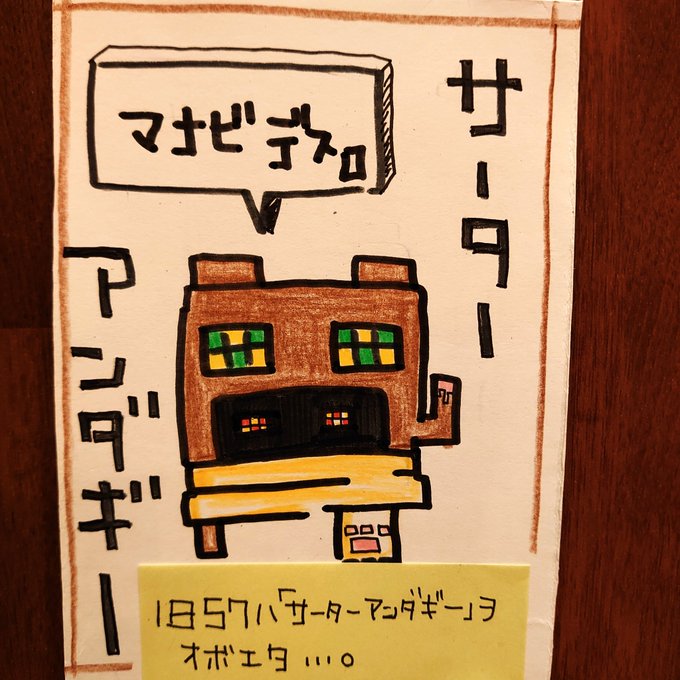 サーター
アンダギー
マナビデス。
1857ハ「サーターアンダギー」ヲ
オボエタ…。